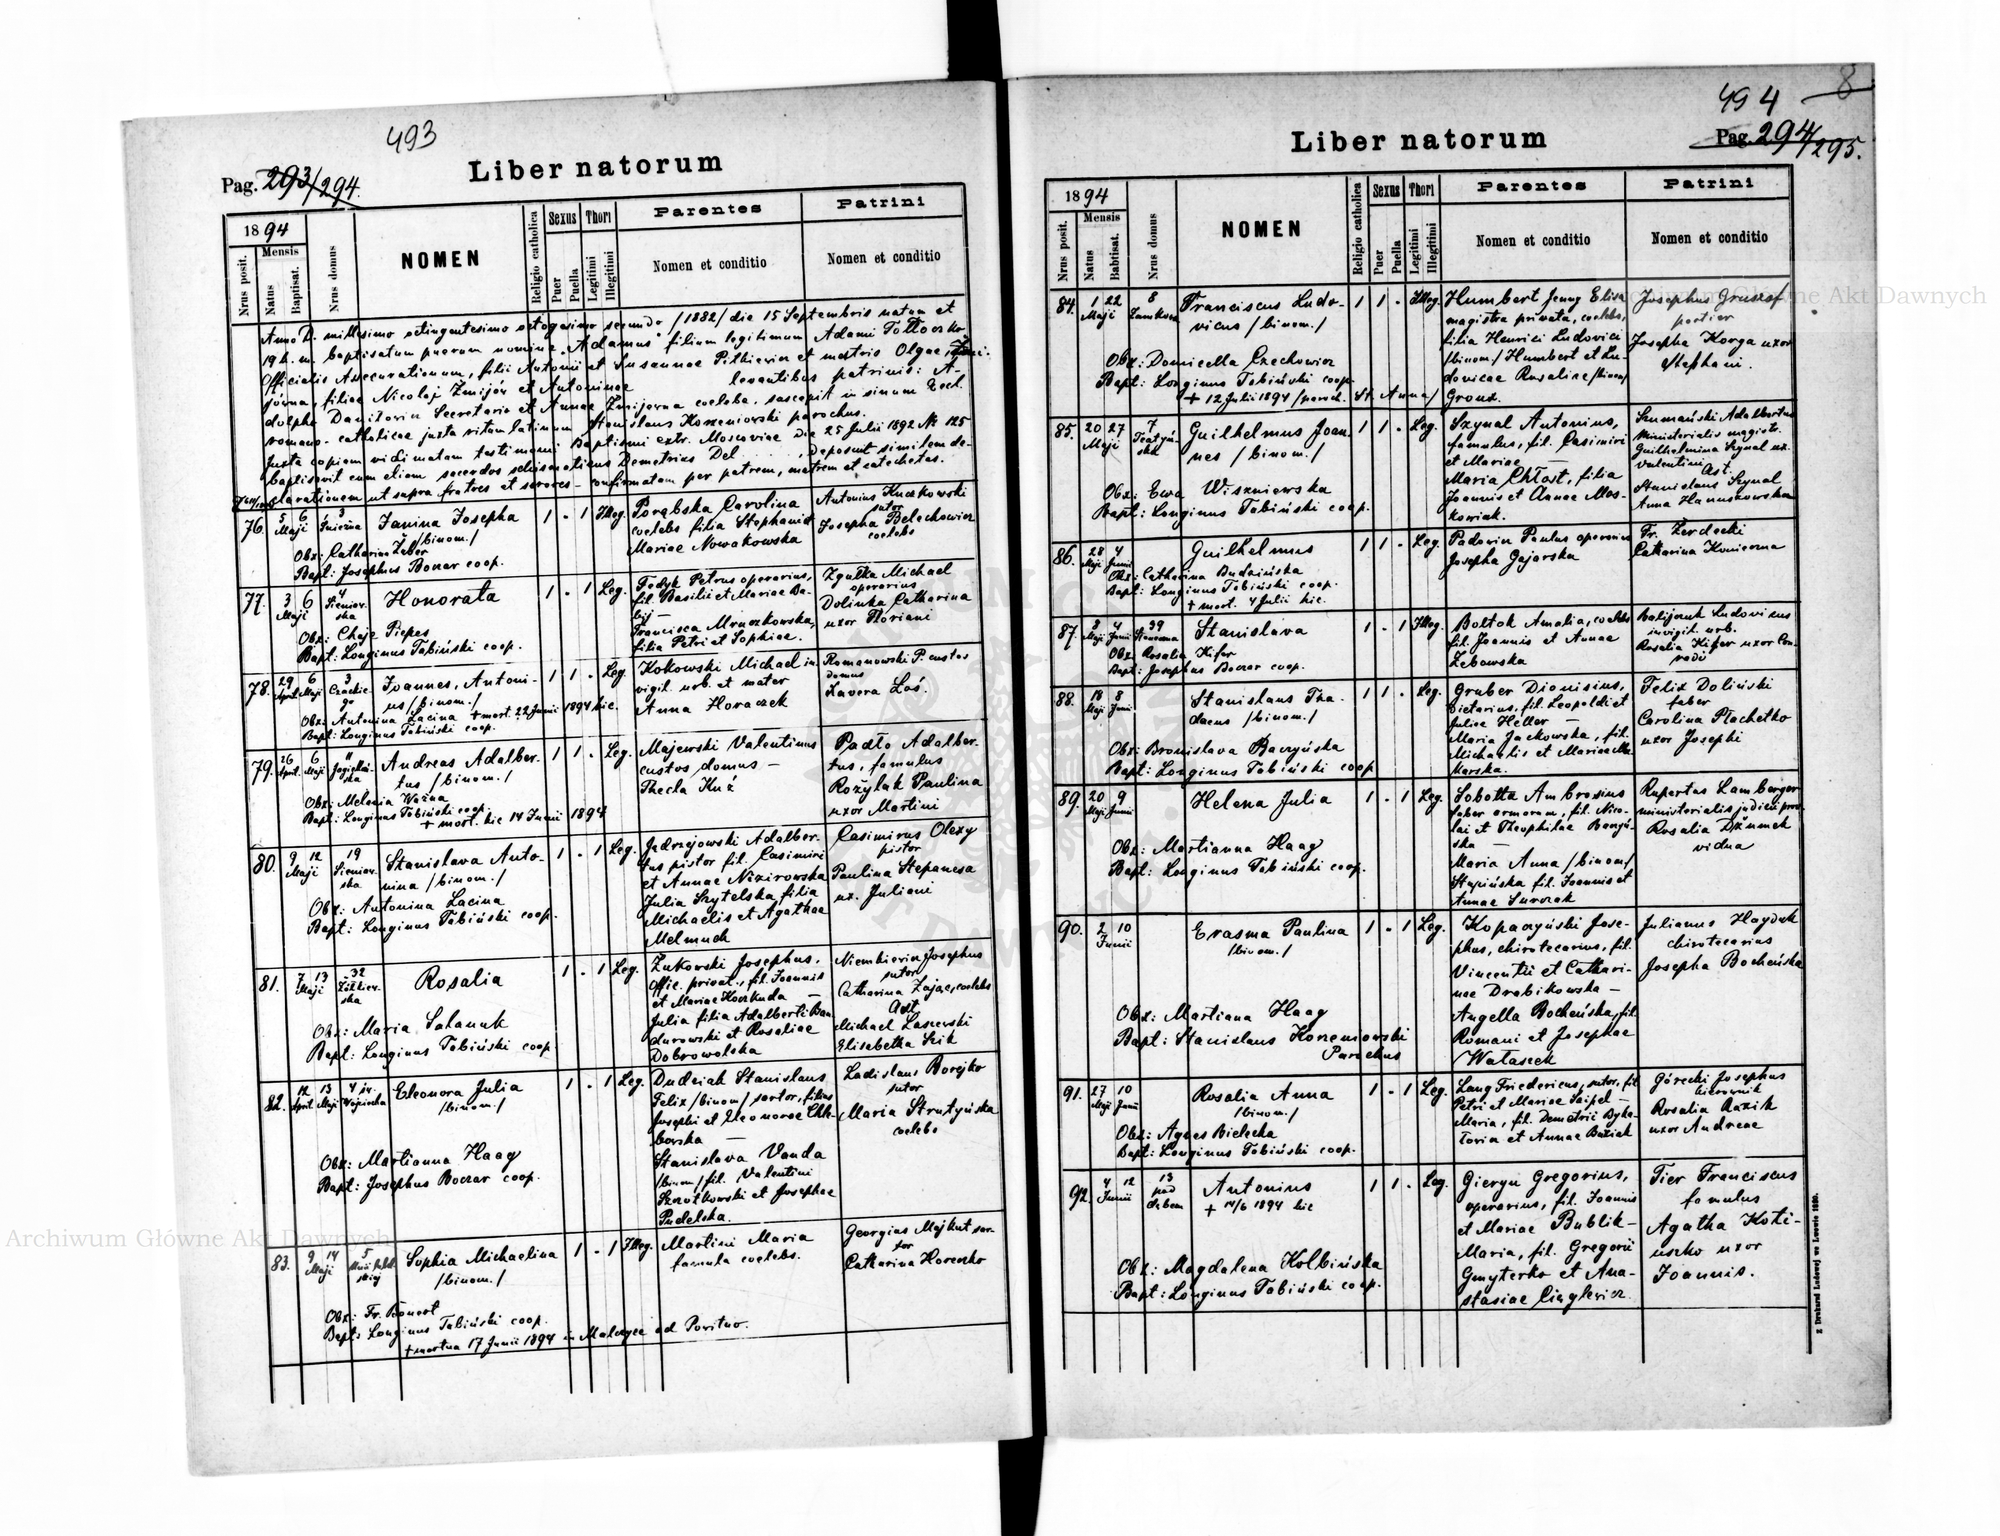 493
Liber natorum
Pag. 293/294.
1894
Nrus posit.
Mensis
Natus
Baptisat.
Nrus domus
NOMEN
Religio catholica
Sexus
Puer
Puella
Thori
Legitimi
Illegitimi
Parentes
Nomen et conditio
Patrini
Nomen et conditio
Anno D. millesimo octingentesimo octogesimo secundo /1882/ die 15 Septembris natum et
19 h. m. baptisatum puerum nomine "Adamus" filium legitimum Adami
Officialis Assecurationum, filii Antonii et Susannae Pitkiewicz et matris Olgae
filiae Nicolaj Żmijów et Antoninae levantibus patrinis: A-
dolpho Danilowicz Secretario et Annae Żmijowna coeleba, suscepit in sinum Eccl.
romano-catholicae juxta ritum latinum Stanislaus Korzeniowski parochus.
Juxta copiam vidimatam testimonii Baptismi extr. Moscoviae die 25 Julii 1892 № 125
baptisavit eum etiam sacerdos schismaticus Demetrius Del...... Deposuit similem de-
clarationem ut supra fratres et sorores - confirmatam per patrem, matrem et catechetas.
76. 5 6 Maji 3 Śnieżna Janina Josepha /binom./ 1 - 1 Illeg. Porąbska Carolina
coelebs filia Stephani et
Mariae Nowakowska
Antonius Kuczkowski
sutor
Josepha Belechowicz
coelebs
Obx: Catharina Żeber
Bapt: Josephus Boczar coop.
77. 3 6 Maji 4 Sieniaw-
ska Honorata 1 - 1 Leg. Fedyk Petrus operarius,
fil. Basilii et Mariae Ba-
Francisca Mruczkowska,
filia Petri et Sophiae.
Zgałka Michael
operarius
Dolinka Catharina
uxor Floriani
Obx: Chaje Piepes
Bapt: Longinus Tobiński coop.
78. 29 April. 6 Maji 3 Czackie-
go Joannes, Antoni-
us /binom./ 1 1 - Leg. Kokowski Michael in-
vigil. urb. et mater
Anna Horaczek
Romanowski P. custos
domus
Xavera Łoś.
Obx: Antonina Lacina + mort. 22 Junii 1894 hic.
Bapt: Longinus Tobiński coop.
79. 26 April. 6 Maji 11 Jagielloń-
ska Andreas Adalber-
tus /binom./ 1 1 - Leg. Majewski Valentinus
custos domus -
Thecla Kuś
Padło Adalber-
tus, famulus
Rożylak Paulina
uxor Martini
Obx: Melania Ważna
Bapt: Longinus Tobiński coop.
+ mort. hic 14 Junii 1894
80. 9 12 Maji 19 Sieniaw-
ska Stanislava Anto-
nina /binom./ 1 - 1 Leg. Jędrzejowski Adalber-
tus pistor fil. Casimiri
et Annae Nizirowska
Julia Szytelska filia
Michaelis et Agathae
Melmuch
Casimirus Olexy
pistor
Paulina Stepancsa
ux. Juliani
Obx: Antonina Lacina
Bapt: Longinus Tobiński coop.
81. 7 13 Maji 32 Żółkiew-
ska Rosalia 1 - 1 Leg. Żukowski Josephus,
offic. privat., fil. Joannis
et Mariae Koczkuda -
Julia filia Adalberti Ban-
durowski et Rosaliae
Dobrowolska
Niemkiewicz Josephus
sutor
Catharina Zając, coelebs
Ast
Michael Laszewski
Elisabetha Szik
Obx: Maria Salamuk
Bapt: Longinus Tobiński coop.
82. 12 April. 13 Maji 4 św.
Wojciecha Eleonora Julia
/binom./ 1 - 1 Leg. Dudziak Stanislaus
Felix /binom/ sartor, filius
Josephi et Eleonorae Chle-
borska -
Stanislava Vanda
/binom/ fil. Valentini
Szrotkowski et Josephae
Pudelska.
Ladislaus Borejko
sutor
Maria Strutyńska
coelebs
Obx: Martianna Haag
Bapt: Josephus Boczar coop.
83. 9 14 Maji 5 Sophia Michaelina
/binom./ 1 - 1 Illeg. Martini Maria
famula coelebs.
Georgius Majkut sar-
tor
Catharina Horenko
Obx: Fr. Bonort
Bapt: Longinus Tobiński coop.
+ mortua 17 Junii 1894 in Malczyce ad Poritno.
8
494
Liber natorum
Pag. 294/295.
1894
Nrus posit.
Mensis
Natus
Babtisat.
Nrus domus
NOMEN
Religio catholica
Sexus
Puer
Puella
Thori
Legitimi
Illegitimi
Parentes
Nomen et conditio
Patrini
Nomen et conditio
84. 1 22 Maji 8 Zamknięta Franciscus Ludo-
vicus /binom./ 1 1 - Illeg. Humbert Jenny Elise
magistra privata, coelebs,
filia Henrici Ludovici
/binom/ Humbert et Lu-
dovicae Rosaline /binom/
Grouz.
Josephus Gruszof
portier
Josepha Korga uxor
Stephani.
Obx: Domicella Czechowicz
Bapt: Longinus Tobiński coop.
+ 12 Julii 1894 /paroch. St. Anna/
85. 20 27 Maji 7 Teatyń-
ska Guilhelmus Joan-
nes /binom./ 1 1 - Leg. Szynal Antonius,
famulus, fil. Casimiri
et Mariae -
Maria Chłost, filia
Joannis et Annae Mos-
kowiak.
Szumański Adalbertus
Ministerialis magistr.
Guilhelmina Szynal ux.
Valentini Ast.
Stanislaus Szynal
Anna Hanuskowska
Obx: Ewa Wiszniewska
Bapt: Longinus Tobiński coop.
86. 28 Maji 4 Junii Guilhelmus 1 1 - Leg. Padowin Paulus operarius
Josepha Gajarska
Fr. Zerdecki
Catharina Konieczna
Obx: Catharina Budzińska
Bapt: Longinus Tobiński coop.
+ mort. 4 Julii hic.
87. 3 Maji 4 Junii 39 Stanislava 1 - 1 Illeg. Boltok Amalia, coelebs
fil. Joannis et Annae
Zebowska
Balijczuk Ludovicus
invigil. urb.
Rosalia Kifer uxor Con-
radi
Obx: Rosalia Kifer
Bapt: Josephus Boczar coop.
88. 18 Maji 8 Junii Stanislaus Tha-
daeus /binom./ 1 1 - Leg. Gruber Dionisius,
Dietarius, fil. Leopoldi et
Julia Heller -
Maria Jackowska, fil.
Michaelis et Mariae Ma-
Marska.
Felix Doliński
faber
Carolina Płachetko
uxor Josephi
Obx: Bronislava Baczyńska
Bapt: Longinus Tobiński coop.
89. 20 Maji 9 Junii Helena Julia 1 - 1 Leg. Sobotta Ambrosius
faber armorum, fil. Nico-
lai et Theophilae Baczyń-
ska -
Maria Anna /binom/
Stupińska fil. Joannis et
Annae Surczak
Rupertus Lamberger
ministerialis judicii prov.
Rosalia Dżumek
vidua
Obx: Martianna Haag
Bapt: Longinus Tobiński coop.
90. 2 10 Junii Erasma Paulina
/binom./ 1 - 1 Leg. Kopaczyński Jose-
phus, chirotecarius, fil.
Vincentii et Cathari-
nae Drabikowska -
Angella Bocheńska, fil.
Romani et Josephae
Wataszek
Julianus Hayduk
chirotecarius
Josepha Bocheńska
Obx: Martiana Haag
Bapt: Stanislaus Korzeniowski
Parochus
91. 27 Maji 10 Junii Rosalia Anna
/binom./ 1 - 1 Leg. Lang Friedericus, sutor, fil.
Petri et Mariae Saipel -
Maria, fil. Demetrii Dyka-
Toria et Annae Buziak
Górecki Josephus
kierownik
Rosalia Razik
uxor Andreae
Obx: Agnes Bielecka
Bapt: Longinus Tobiński coop.
92. 4 12 Junii 13 pod
Dębem Antonius
+ 14/6 1894 hic 1 1 - Leg. Gieryn Gregorius,
operarius, fil. Joannis
et Mariae Bublik -
Maria, fil. Gregorii
Gmyterko et Ana-
stasiae Cięglewicz.
Tier Franciscus
famulus
Agatha Koti-
uszko uxor
Joannis.
Obx: Magdalena Kolbińska
Bapt: Longinus Tobiński coop.
Z Drukarni Ludowej we Lwowie 1890.
Archiwum Główne Akt Dawnych
Archiwum Główne Akt Dawnych